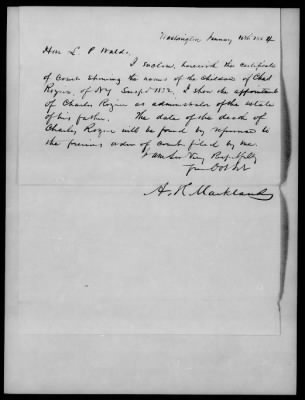 Washington January
Hon L. P. Waldo,
I enclose herewith the certificate
of Court showing the names of the children of Chas
Rogers, of NY Susp'd 1832. I show the appointment
of Charles Rogers as administrator of the estate
of his father. The date of the death of
Charles Rogers will be found by reference to
the previous order of court filed by me.
I am Sir Very Resp'flly
Your Obt Svt
A. H. Markland